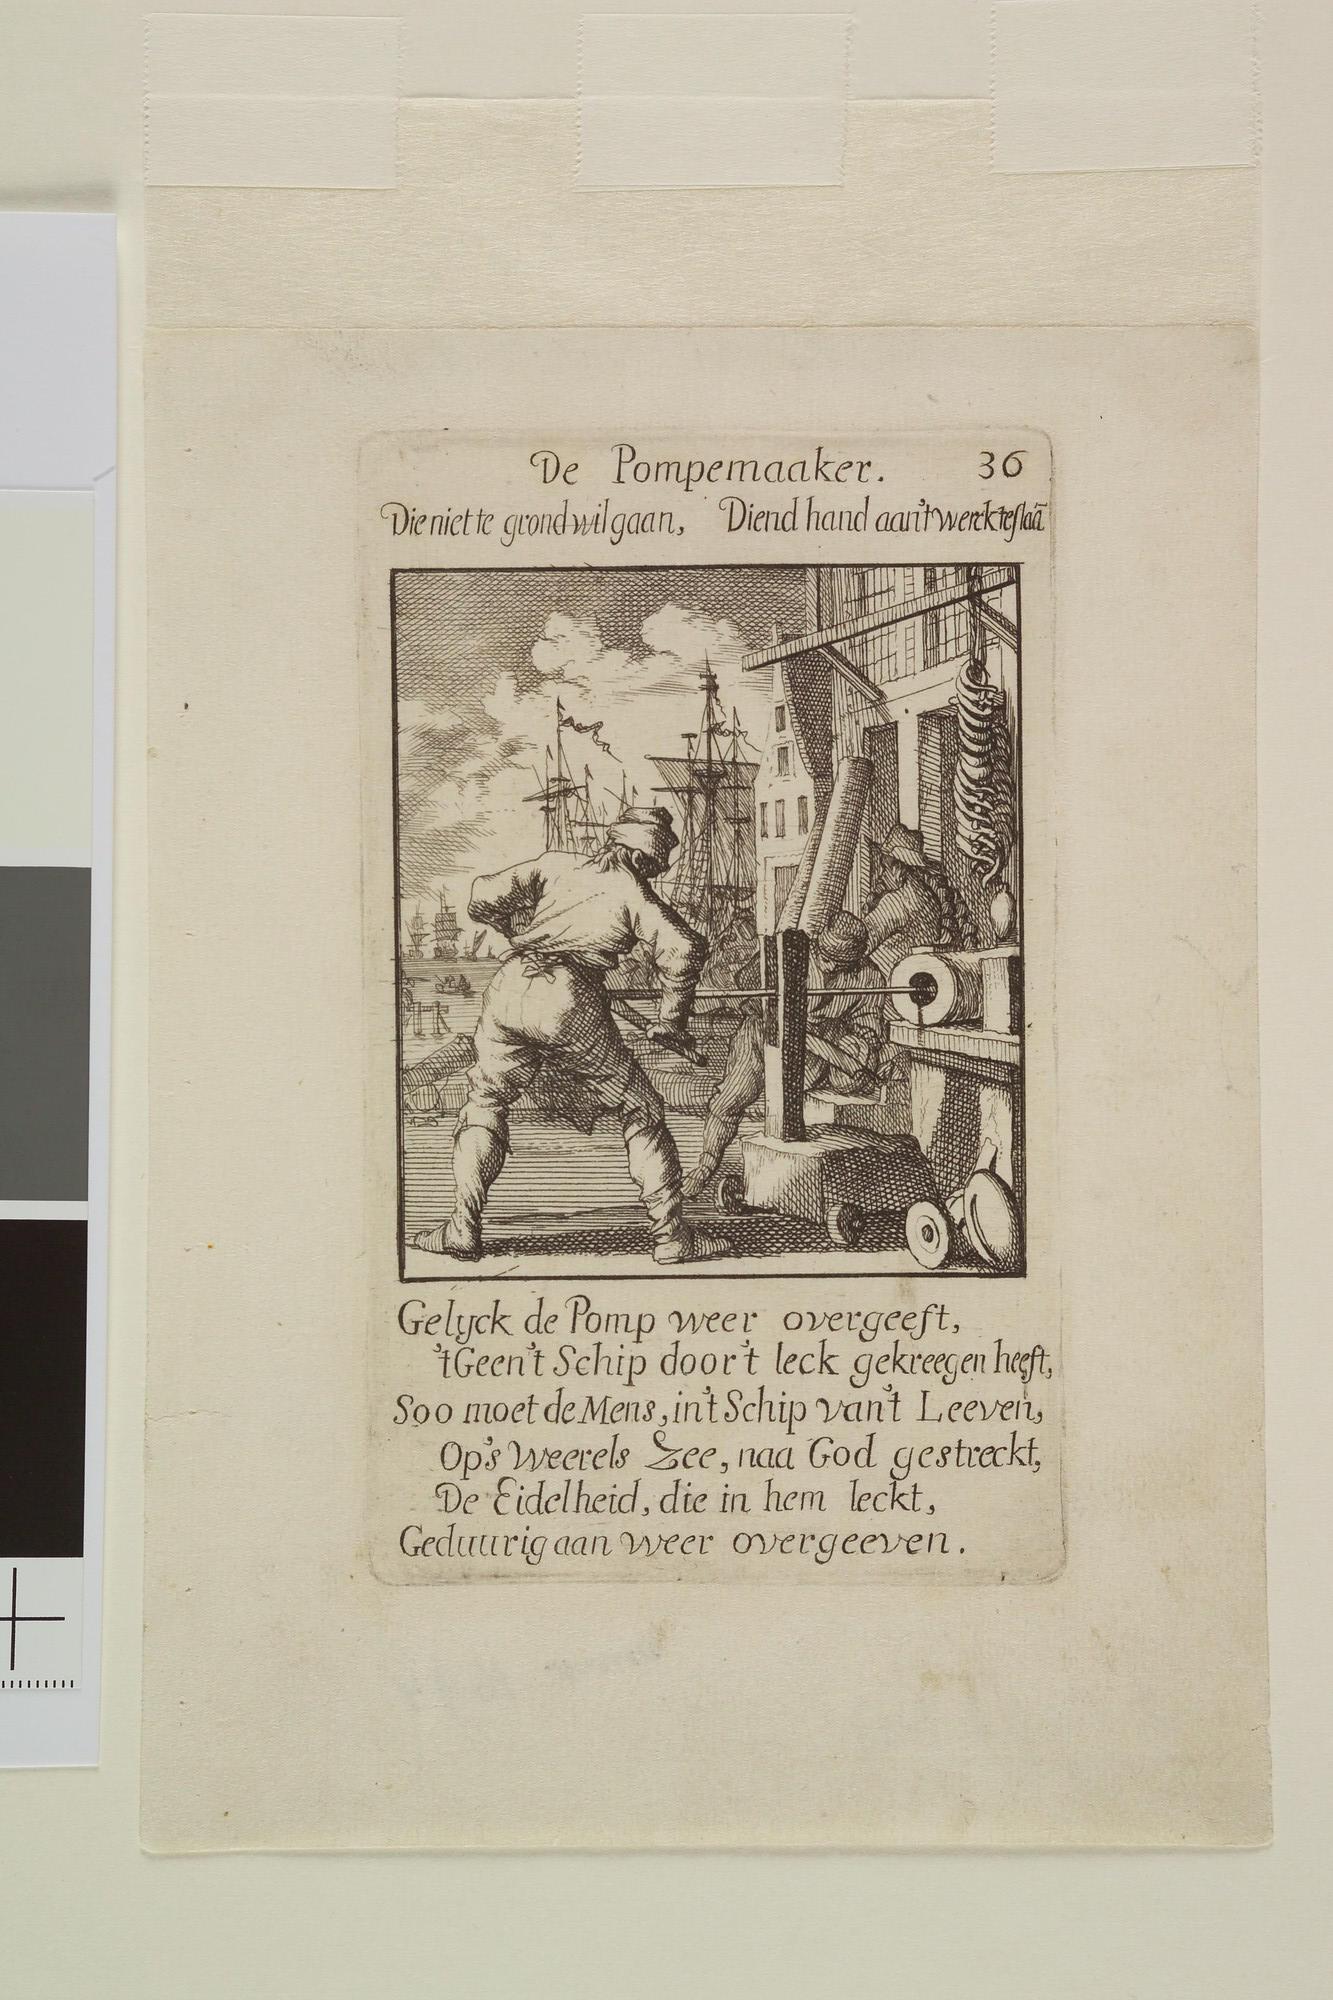 De Pompemaaker. 36
Die niet te grond wil gaan, Diend hand aan't werck te slaã
Gelyck de Pomp weer overgeeft,
'tGeen't Schip door't leck gekreegen heeft,
Soo moet de Mens, in't Schip van't Leeven,
Op's Weerels Zee, naa God gestreckt,
De Eidelheid, die in hem leckt,
Geduurig aan weer overgeeven.